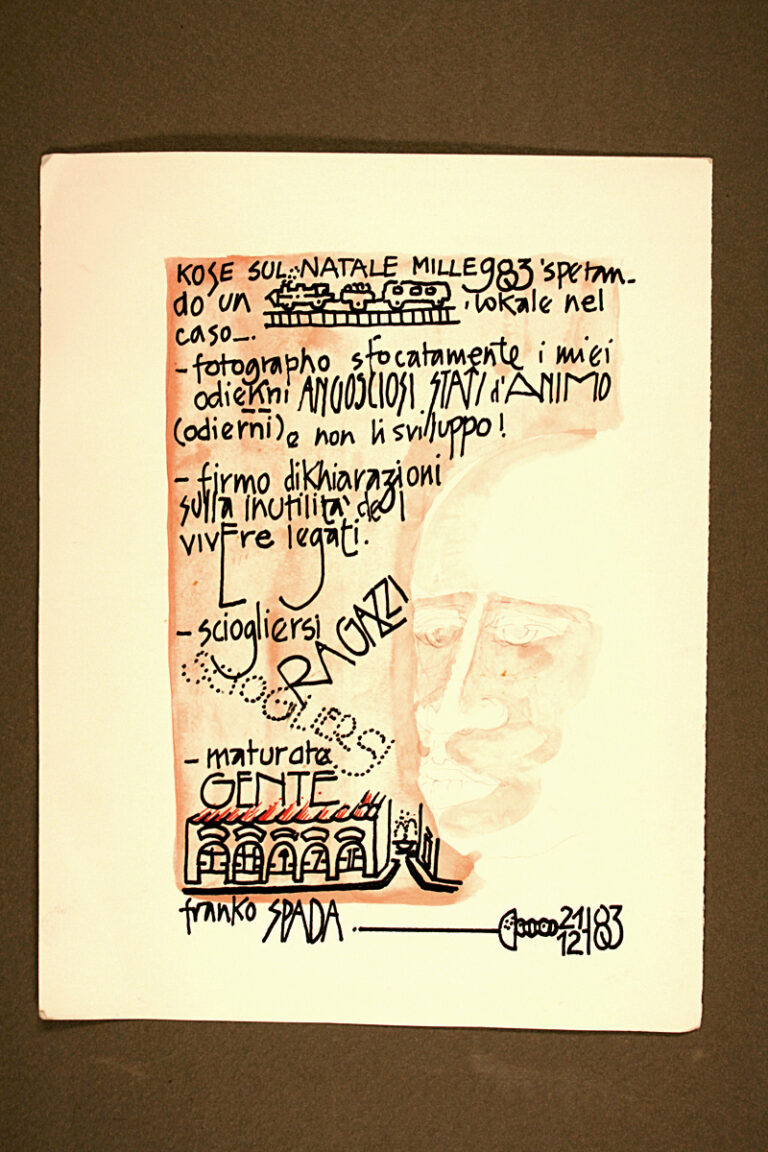 KOSE SUL NATALE MILLE983 'spetan_
do un , lokale nel
caso_.
- fotographo sfocatamente i miei
odierni ANGOSCIOSI STATI d'ANIMO
(odierni) e non li sviluppo!
- firmo dikhiarazioni
sulla inutilità del
vivere legati.
- sciogliersi RAGAZZI
SCIOGLIERSI
- maturata
GENTE
franko SPADA.
21
12 83